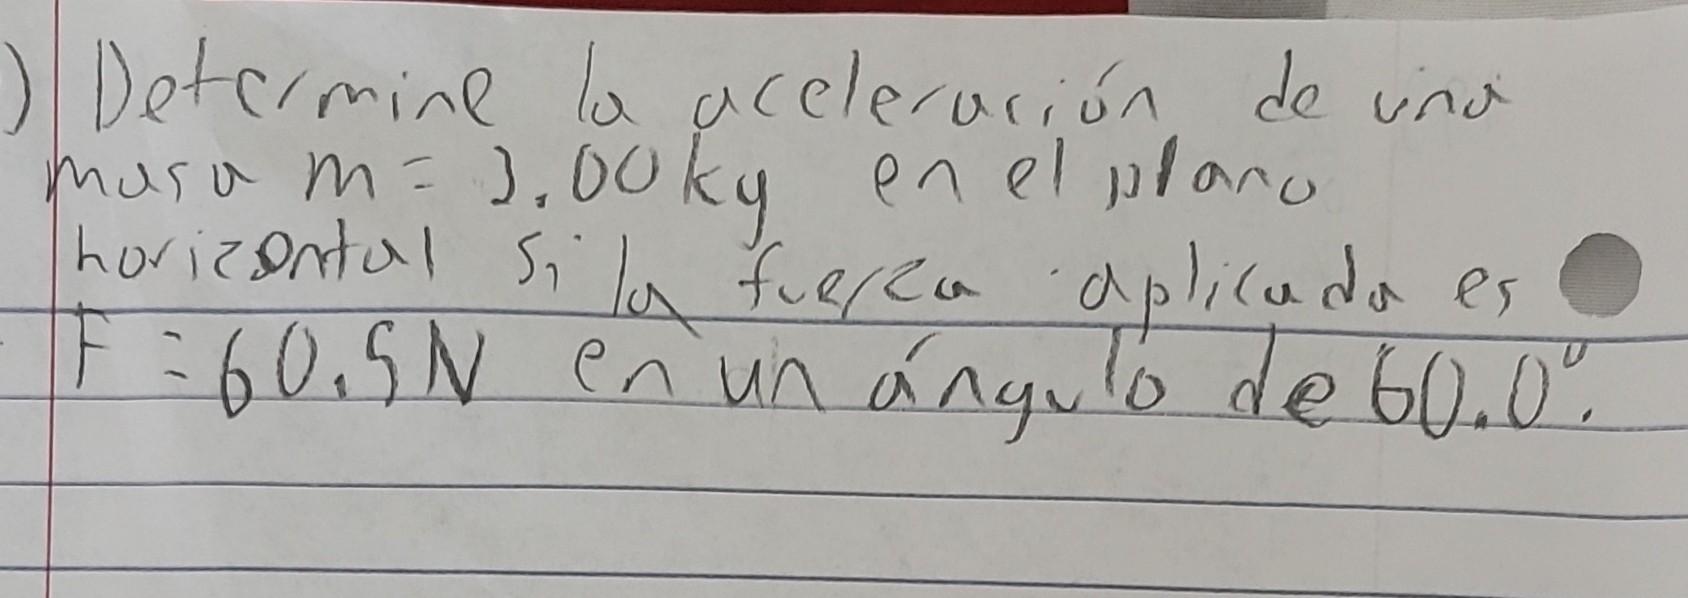 ) Determine la aceleración de una
masa m = 3.00kg en el plano
horizontal si la fuerza aplicada es
F = 60.5N en un ángulo de 60.0°.